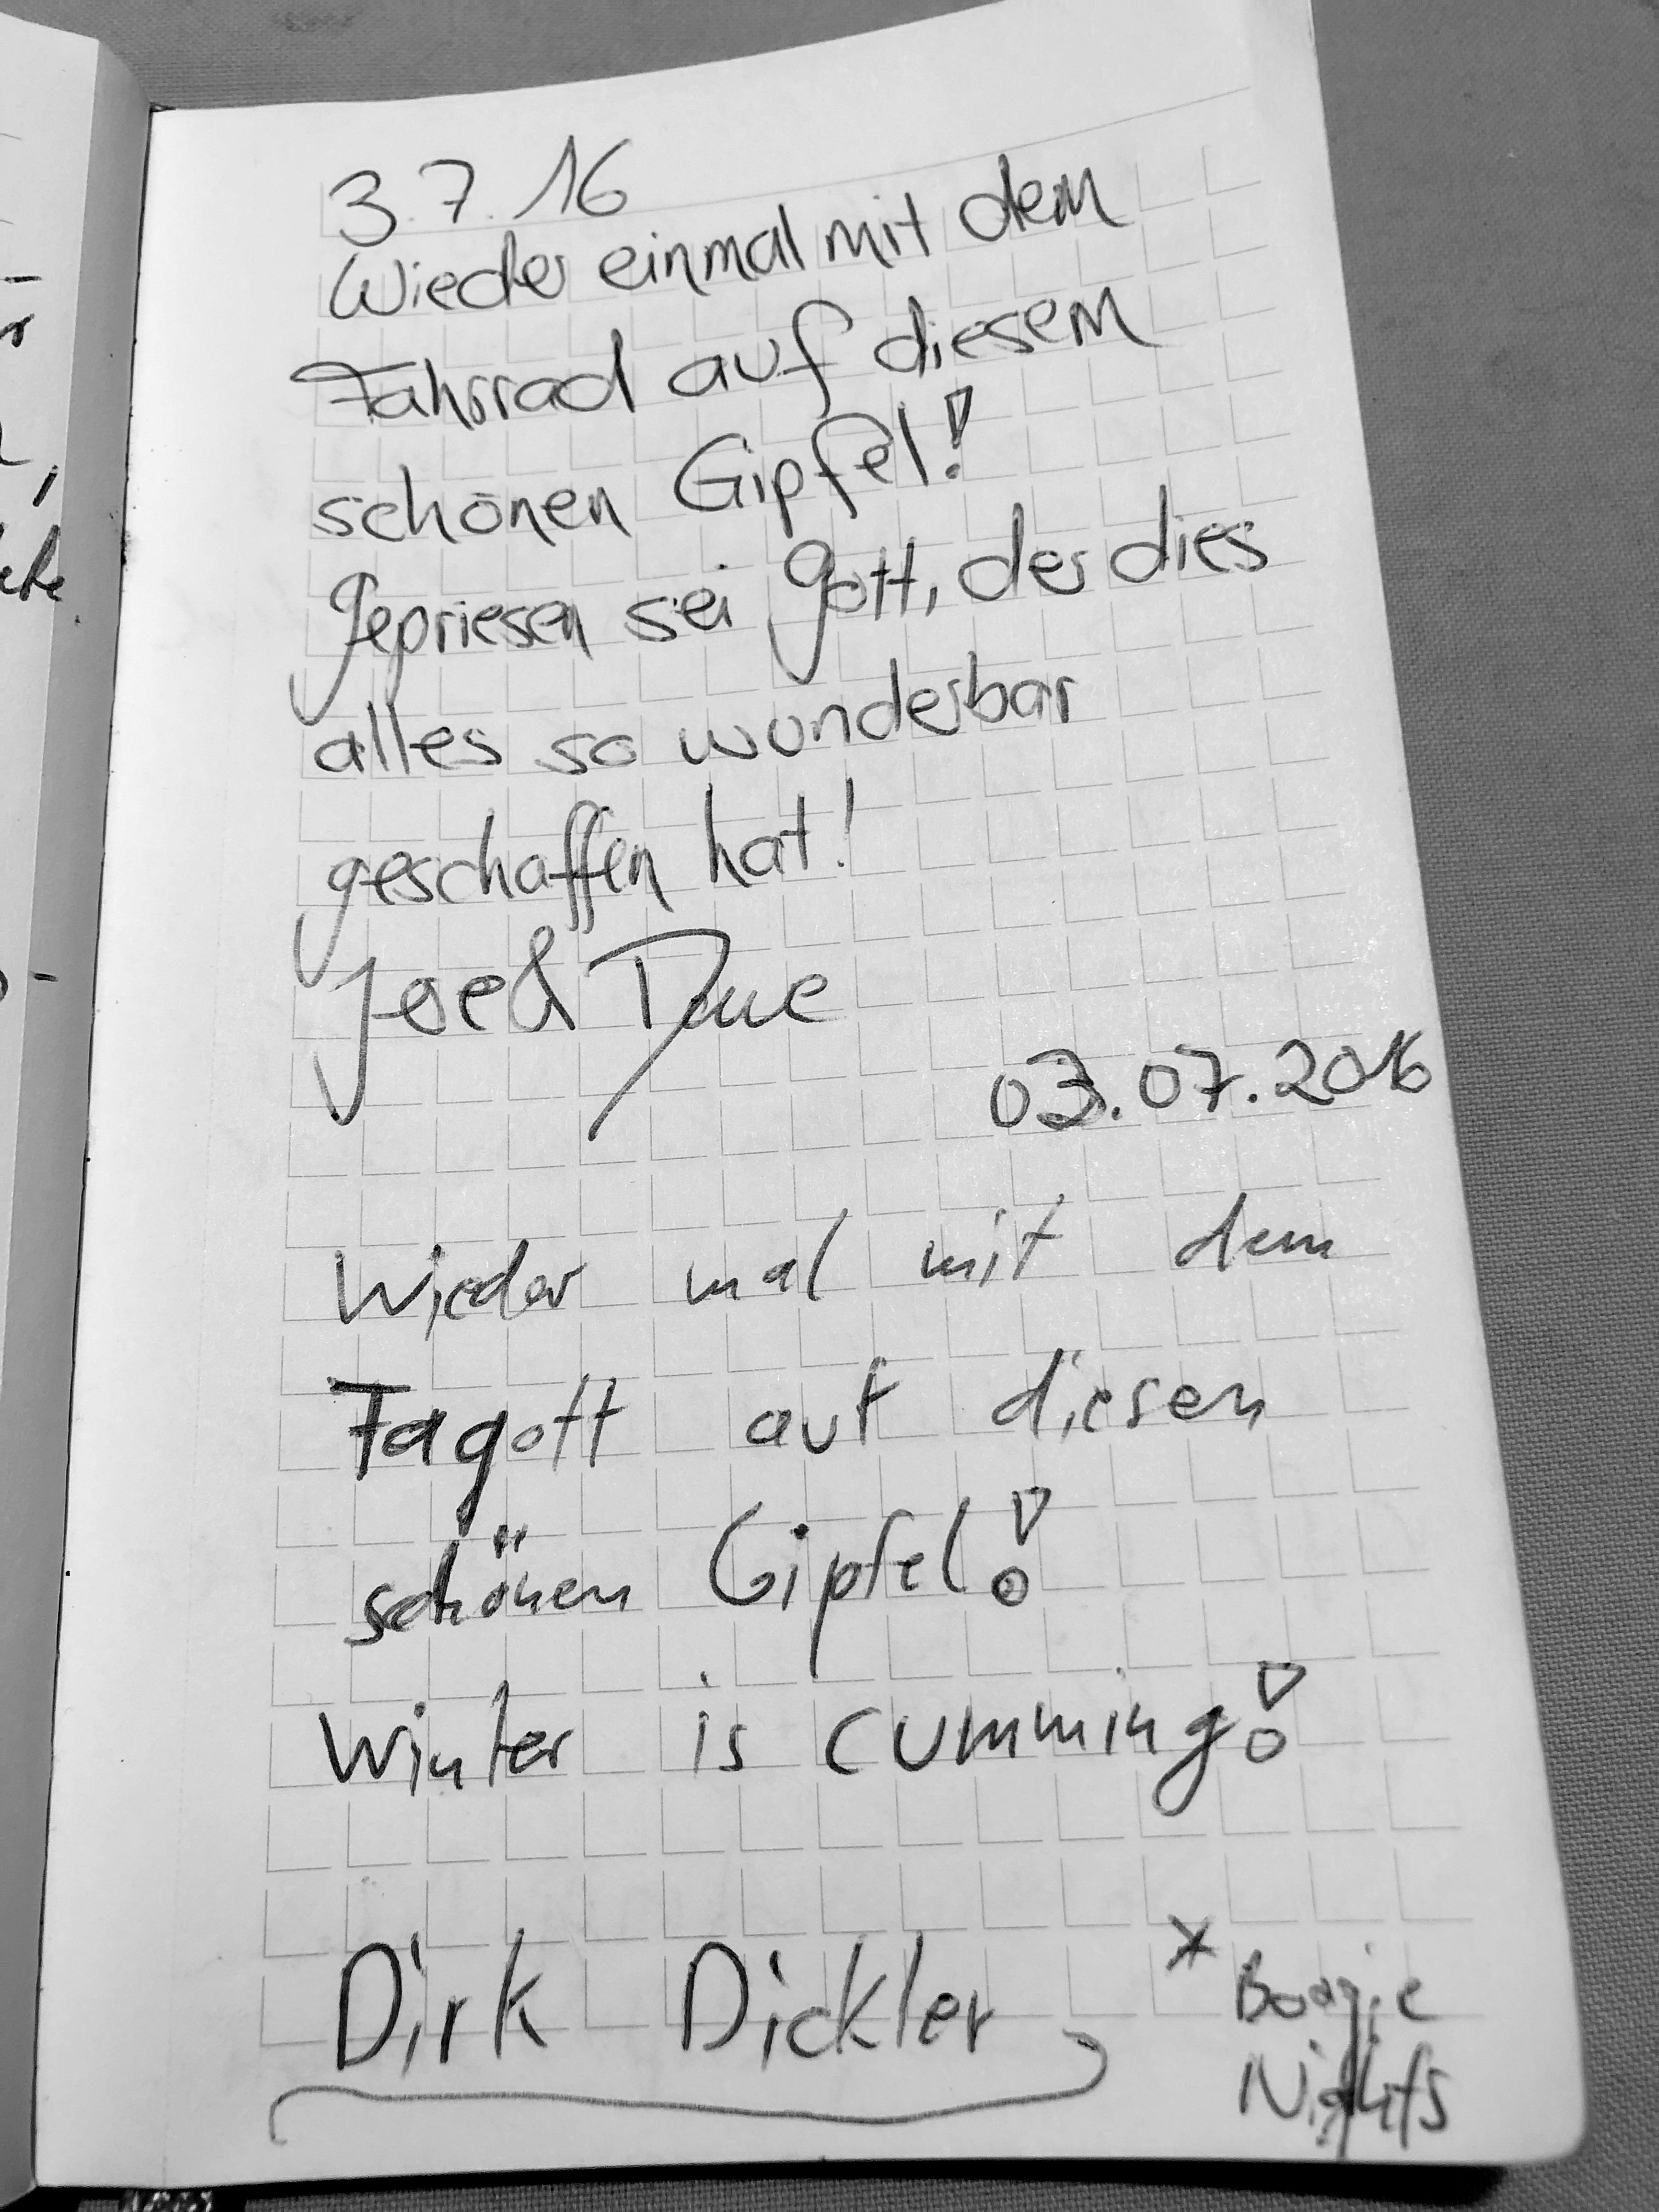 3.7.16
Wieder einmal mit dem
Fahrrad auf diesem
schönen Gipfel!
Gepriesen sei Gott, der dies
alles so wunderbar
geschaffen hat!
Joe & Dave
03.07.2016
Wieder mal mit dem
Fagott auf diesen
schönen Gipfel!
Winter is cumming!
Dirk Dickler
* Boogie
Nights